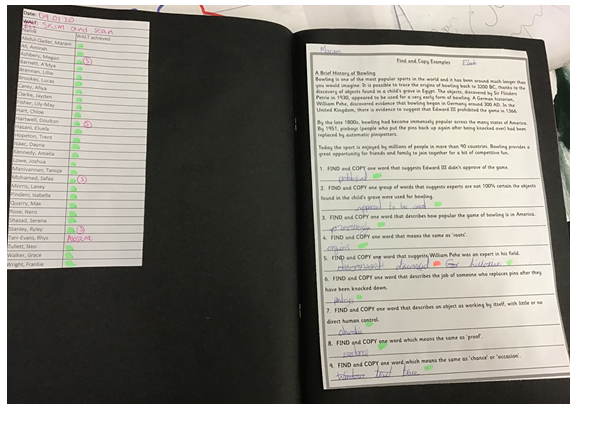 Date: 09.01.20
WALT: Skim and scan
Name WALT achieved
Abdul-Qader, Maram
Ali, Amirah
Ashbery, Megan
Barnett, A'Mya
Brennan, Lillie
Brookes, Lucas
Carey, Afiya
Clarke, Jayden
Fisher, Lily-May
Hart, Chloe
Hartwell, Doulton
Hasani, Eluela
Hopeton, Trare
Isaac, Dayna
Kennedy, Amelia
Lowe, Joshua
Manivannan, Tanuja
Mohamed, Safaa
Morris, Laney
Pinders, Isabella
Quarry, Max
Rose, Nero
Shazad, Serena
Stanley, Ryley
Tam-Evans, Rhys Absent
Tullett, Neo
Walker, Grace
Wright, Frankie
Maram
Find and Copy Examples
A Brief History of Bowling
Bowling is one of the most popular sports in the world and it has been around much longer than
you would imagine. It is possible to trace the origins of bowling back to 3200 BC, thanks to the
discovery of objects found in a child's grave in Egypt. The objects, discovered by Sir Flinders
Petrie in 1930, appeared to be used for a very early form of bowling. A German historian,
William Pehe, discovered evidence that bowling began in Germany around 300 AD. In the
United Kingdom, there is evidence to suggest that Edward III prohibited the game in 1366.
By the late 1800s, bowling had become immensely popular across the many states of America.
By 1951, pinboys (people who put the pins back up again after being knocked over) had been
replaced by automatic pinspotters.
Today the sport is enjoyed by millions of people in more than 90 countries. Bowling provides a
great opportunity for friends and family to join together for a bit of competitive fun.
1. FIND and COPY one word that suggests Edward III didn't approve of the game.
prohibited
2. FIND and COPY one group of words that suggests experts are not 100% certain the objects
found in the child's grave were used for bowling.
appeared to be used
3. FIND and COPY one word that describes how popular the game of bowling is in America.
4. FIND and COPY one word that means the same as 'roots'.
origins
5. FIND and COPY one word that suggests William Pehe was an expert in his field.
historian
6. FIND and COPY one word that describes the job of someone who replaces pins after they
have been knocked down.
pinboys
7. FIND and COPY one word that describes an object as working by itself, with little or no
direct human control.
8. FIND and COPY one word which means the same as 'proof'.
evidence
9. FIND and COPY one word which means the same as 'chance' or 'occasion'.